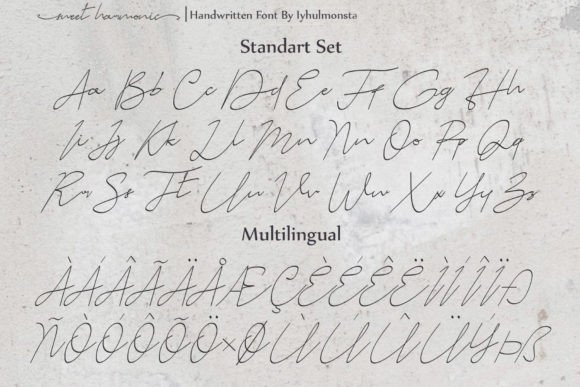 sweet harmonic | Handwritten Font By Iyhulmonsta
Standart Set
Aa Bb Cc Dd Ee Ff Gg Hh
Ii Jj Kk Ll Mm Nn Oo Pp Qq
Rr Ss Tt Uu Vv Ww Xx Yy Zz
Multilingual
ÀÁÂÃÄÅÆÇÈÉÊËÌÍÎÏÐ
ÑÒÓÔÕÖ×ØÙÚÛÜÝÞß